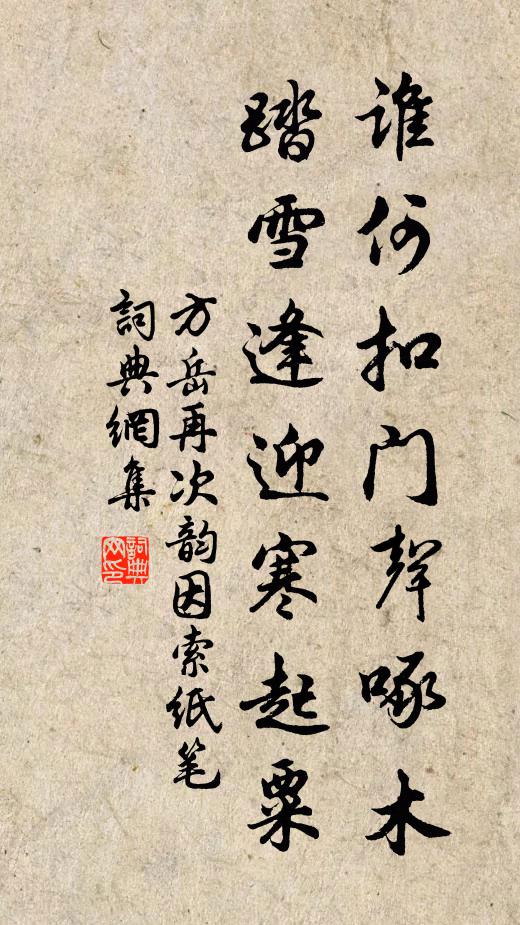 谁何扣门聲啄木
踏雪逢迎寒起粟
方岳再次韵因索纸笔
詞典網集
詞典网印